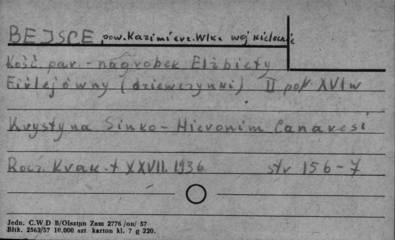 BEJSCE pow. Kazimierz. Wlk. woj. kieleckie
Kość. par. - nagrobek Elżbiety
Firlejówny (dziewczynki) II poł XVI w
Krystyna Sinko - Hieronim Canavesi
Rocz. Krak. t XXVII. 1936 str 156-7
Jedn. C.W D B/Olsztyn Zam 2776 /on/ 57
Bltk. 2563/57 10.000 szt karton kl. 7 g 220.